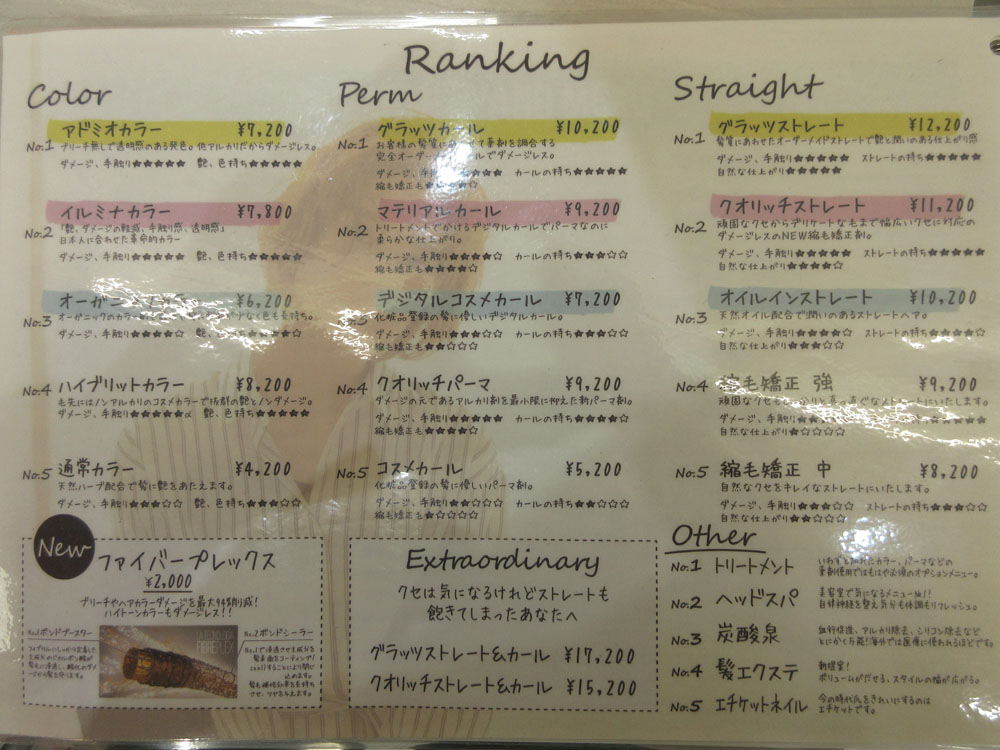 Ranking
Color
No.1 アドミオカラー ¥7,200
ブリーチ無しで透明感のある発色。低アルカリだからダメージレス。
ダメージ、手触り★★★★★ 艶、色持ち★★★★★
No.2 イルミナカラー ¥7,800
「艶、ダメージの軽減、手触り感、透明感」
日本人に合わせた革命的カラー
ダメージ、手触り★★★★★ 艶、色持ち★★★★★
No.3 ¥6,200
ダメージ、手触り★★★★☆ 艶、
No.4 ハイブリットカラー ¥8,200
毛先にはノンアルカリのコスメカラーで抜群の艶とノンダメージ。
ダメージ、手触り★★★★★α 艶、色持ち★★★★★
No.5 通常カラー ¥4,200
天然ハーブ配合で髪に艶をあたえます。
ダメージ、手触り★★★☆☆ 艶、色持ち★★★★☆
New
ファイバープレックス
¥2,000
ブリーチやヘアカラーダメージを最大94%削減!
ハイトーンカラーもダメージレス!!
No.1ボンドブースター
No.2ボンドシーラー
FIBREPLEX
Perm
No.1 グラッツカール ¥10,200
お客様の髪質に 薬剤を調合する
完全オーダー ルでダメージレス。
ダメージ、手触り カールの持ち★★★★★
縮毛矯正毛★★★★☆
No.2 マテリアルカール ¥9,200
トリートメントでかけるデジタルカールでパーマなのに
柔らかな仕上がり。
ダメージ、手触り★★★★☆ カールの持ち★★★☆☆
縮毛矯正毛★★★★☆
No.3 デジタルコスメカール ¥7,200
化粧品登録の髪に優しいデジタルカール。
ダメージ、手触り★★★☆☆ カールの持ち★★★☆☆
縮毛矯正毛★★☆☆☆
No.4 クオリッチパーマ ¥9,200
ダメージの元であるアルカリ剤を最小限に抑えた新パーマ剤。
ダメージ、手触り★★★★★ カールの持ち★★★★☆
縮毛矯正毛★★★★☆
No.5 コスメカール ¥5,200
化粧品登録の髪に優しいパーマ剤。
ダメージ、手触り★★☆☆☆ カールの持ち★★☆☆☆
縮毛矯正毛★☆☆☆☆
Extraordinary
クセは気になるけれどストレートも
飽きてしまったあなたへ
グラッツストレート&カール ¥17,200
クオリッチストレート&カール ¥15,200
Straight
No.1 グラッツストレート ¥12,200
髪質にあわせたオーダーメイドストレートで艶と潤いのある仕上がり感
ダメージ、手触り★★★★★ ストレートの持ち★★★★★
自然な仕上がり★★★★★
No.2 クオリッチストレート ¥11,200
頑固なクセからデリケートな毛まで幅広いクセに対応の
ダメージレスのNEW縮毛矯正剤。
ダメージ、手触り★★★★★ ストレートの持ち★★★★★
自然な仕上がり★★★★☆
No.3 オイルインストレート ¥10,200
天然オイル配合で潤いのあるストレートヘア。
ダメージ、手触り★★★★☆ ストレートの持ち★★★★☆
自然な仕上がり★★★☆☆
No.4 縮毛矯正 強 ¥9,200
自然な仕上がり★☆☆☆☆
No.5 縮毛矯正 中 ¥8,200
自然なクセをキレイなストレートにいたします。
ダメージ、手触り★★★☆☆ ストレートの持ち★★★☆☆
自然な仕上がり★★☆☆☆
Other
No.1 トリートメント
いわずと知れたカラー、パーマなどの
薬剤使用ではもはや必須のオプションメニュー。
No.2 ヘッドスパ
美容室で気になるメニューNo.1!
自律神経を整え気分も体調もリフレッシュ。
No.3 炭酸泉
血行促進、アルカリ除去、シリコン除去など
とにかく万能!海外では医療に使われるほどです。
No.4 髪エクステ
新提案!
ボリュームがだせる、スタイルの幅が広がる。
No.5 エチケットネイル
今の時代爪をきれいにするのは
エチケットです。